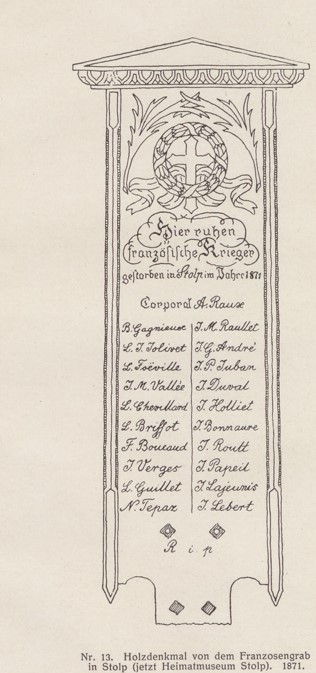 Hier ruhen
französische Krieger
gestorben in Stolp im Jahre 1871
Corporal A. Raux
B. Gagnieux J. M. Raullet
L. J. Jolivet J. G. André
L. Foéville J. P. Juban
J. M. Vallée J. Duval
L. Chevillard J. Holliet
L. Briffot J. Bonnaure
F. Boueaud J. Routt
J. Verges J. Papeil
L. Guillet J. Lajeunis
N. Tepax J. Lebert
R i p
Nr. 13. Holzdenkmal von dem Franzosengrab
in Stolp (jetzt Heimatmuseum Stolp). 1871.